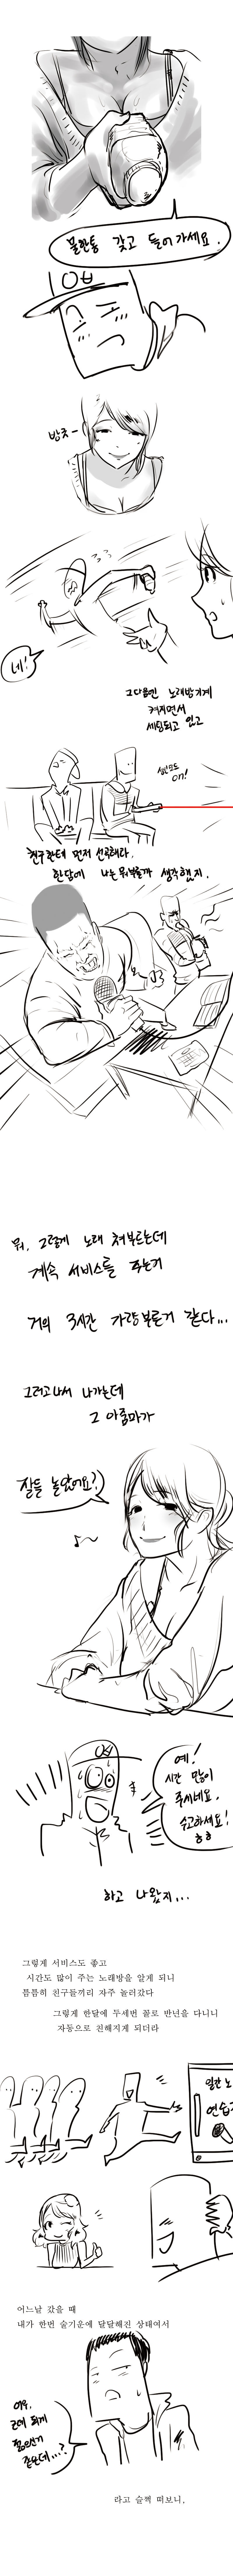 물한통 갖고 들어가세요.
방긋-
네!
그다음엔 노래방기계
켜지면서
세팅되고 있고
on!
친구한테 먼저 선곡해라.
한담에 나는 뭐부를까 생각했지.
뭐, 그렇게 노래 쳐부르는데
계속 서비스를 주는거
거의 3시간 가량부른거 같다...
그러고나서 나가는데
그 아줌마가
잘들 놀았어요?
예!
시간 많이
주시네요.
수고하세요!
ㅎㅎ
하고 나왔지...
그렇게 서비스도 좋고
시간도 많이 주는 노래방을 알게 되니
틈틈히 친구들끼리 자주 놀러갔다
그렇게 한달에 두세번 꼴로 반년을 다니니
자동으로 친해지게 되더라
일간 노
연습
어느날 갔을 때
내가 한번 술기운에 달달해진 상태여서
이우,
근데 되게
젊으신거
같은데...?
라고 슬쩍 떠보니,